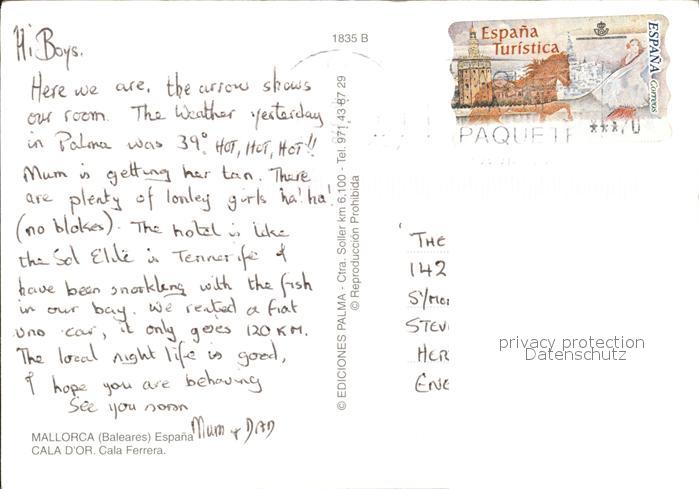 Hi Boys.
Here we are, the arrow shows
our room. The Weather yesterday
in Palma was 39° HOT, HOT, HOT!!
Mum is getting her tan. There
are plenty of lonley girls ha! ha!
(no blokes). The hotel is like
the Sol Elite in Tennerife I
have been snorkling with the fish
in our bay. We rented a fiat
uno car, it only goes 120 KM.
The local night life is good,
I hope you are behaving
See you soon
Mum + DAD
MALLORCA (Baleares) España
CALA D'OR. Cala Ferrera.
1835 B
© EDICIONES PALMA - Ctra. Soller km 6,100 - Tel. 971 43 87 29
© Reproducción Prohibida
España
Turística
ESPAÑA
Correos
PAQUETE
THE
142
SYMO
STEV
HER
ENG
privacy protection
Datenschutz